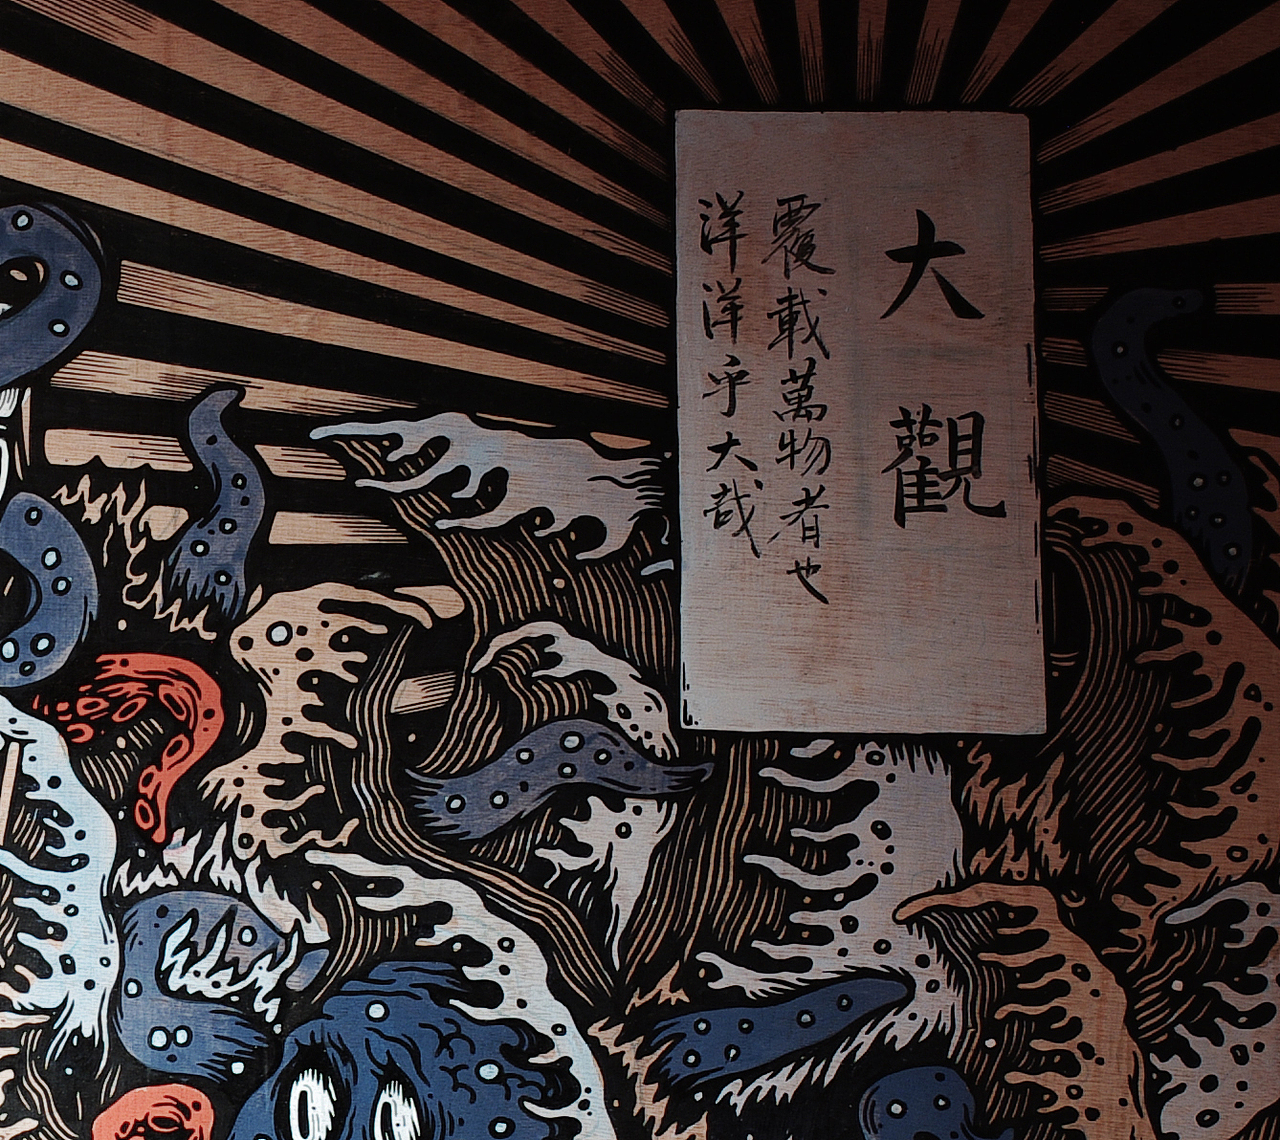 大觀
覆載萬物者也
洋洋乎大哉